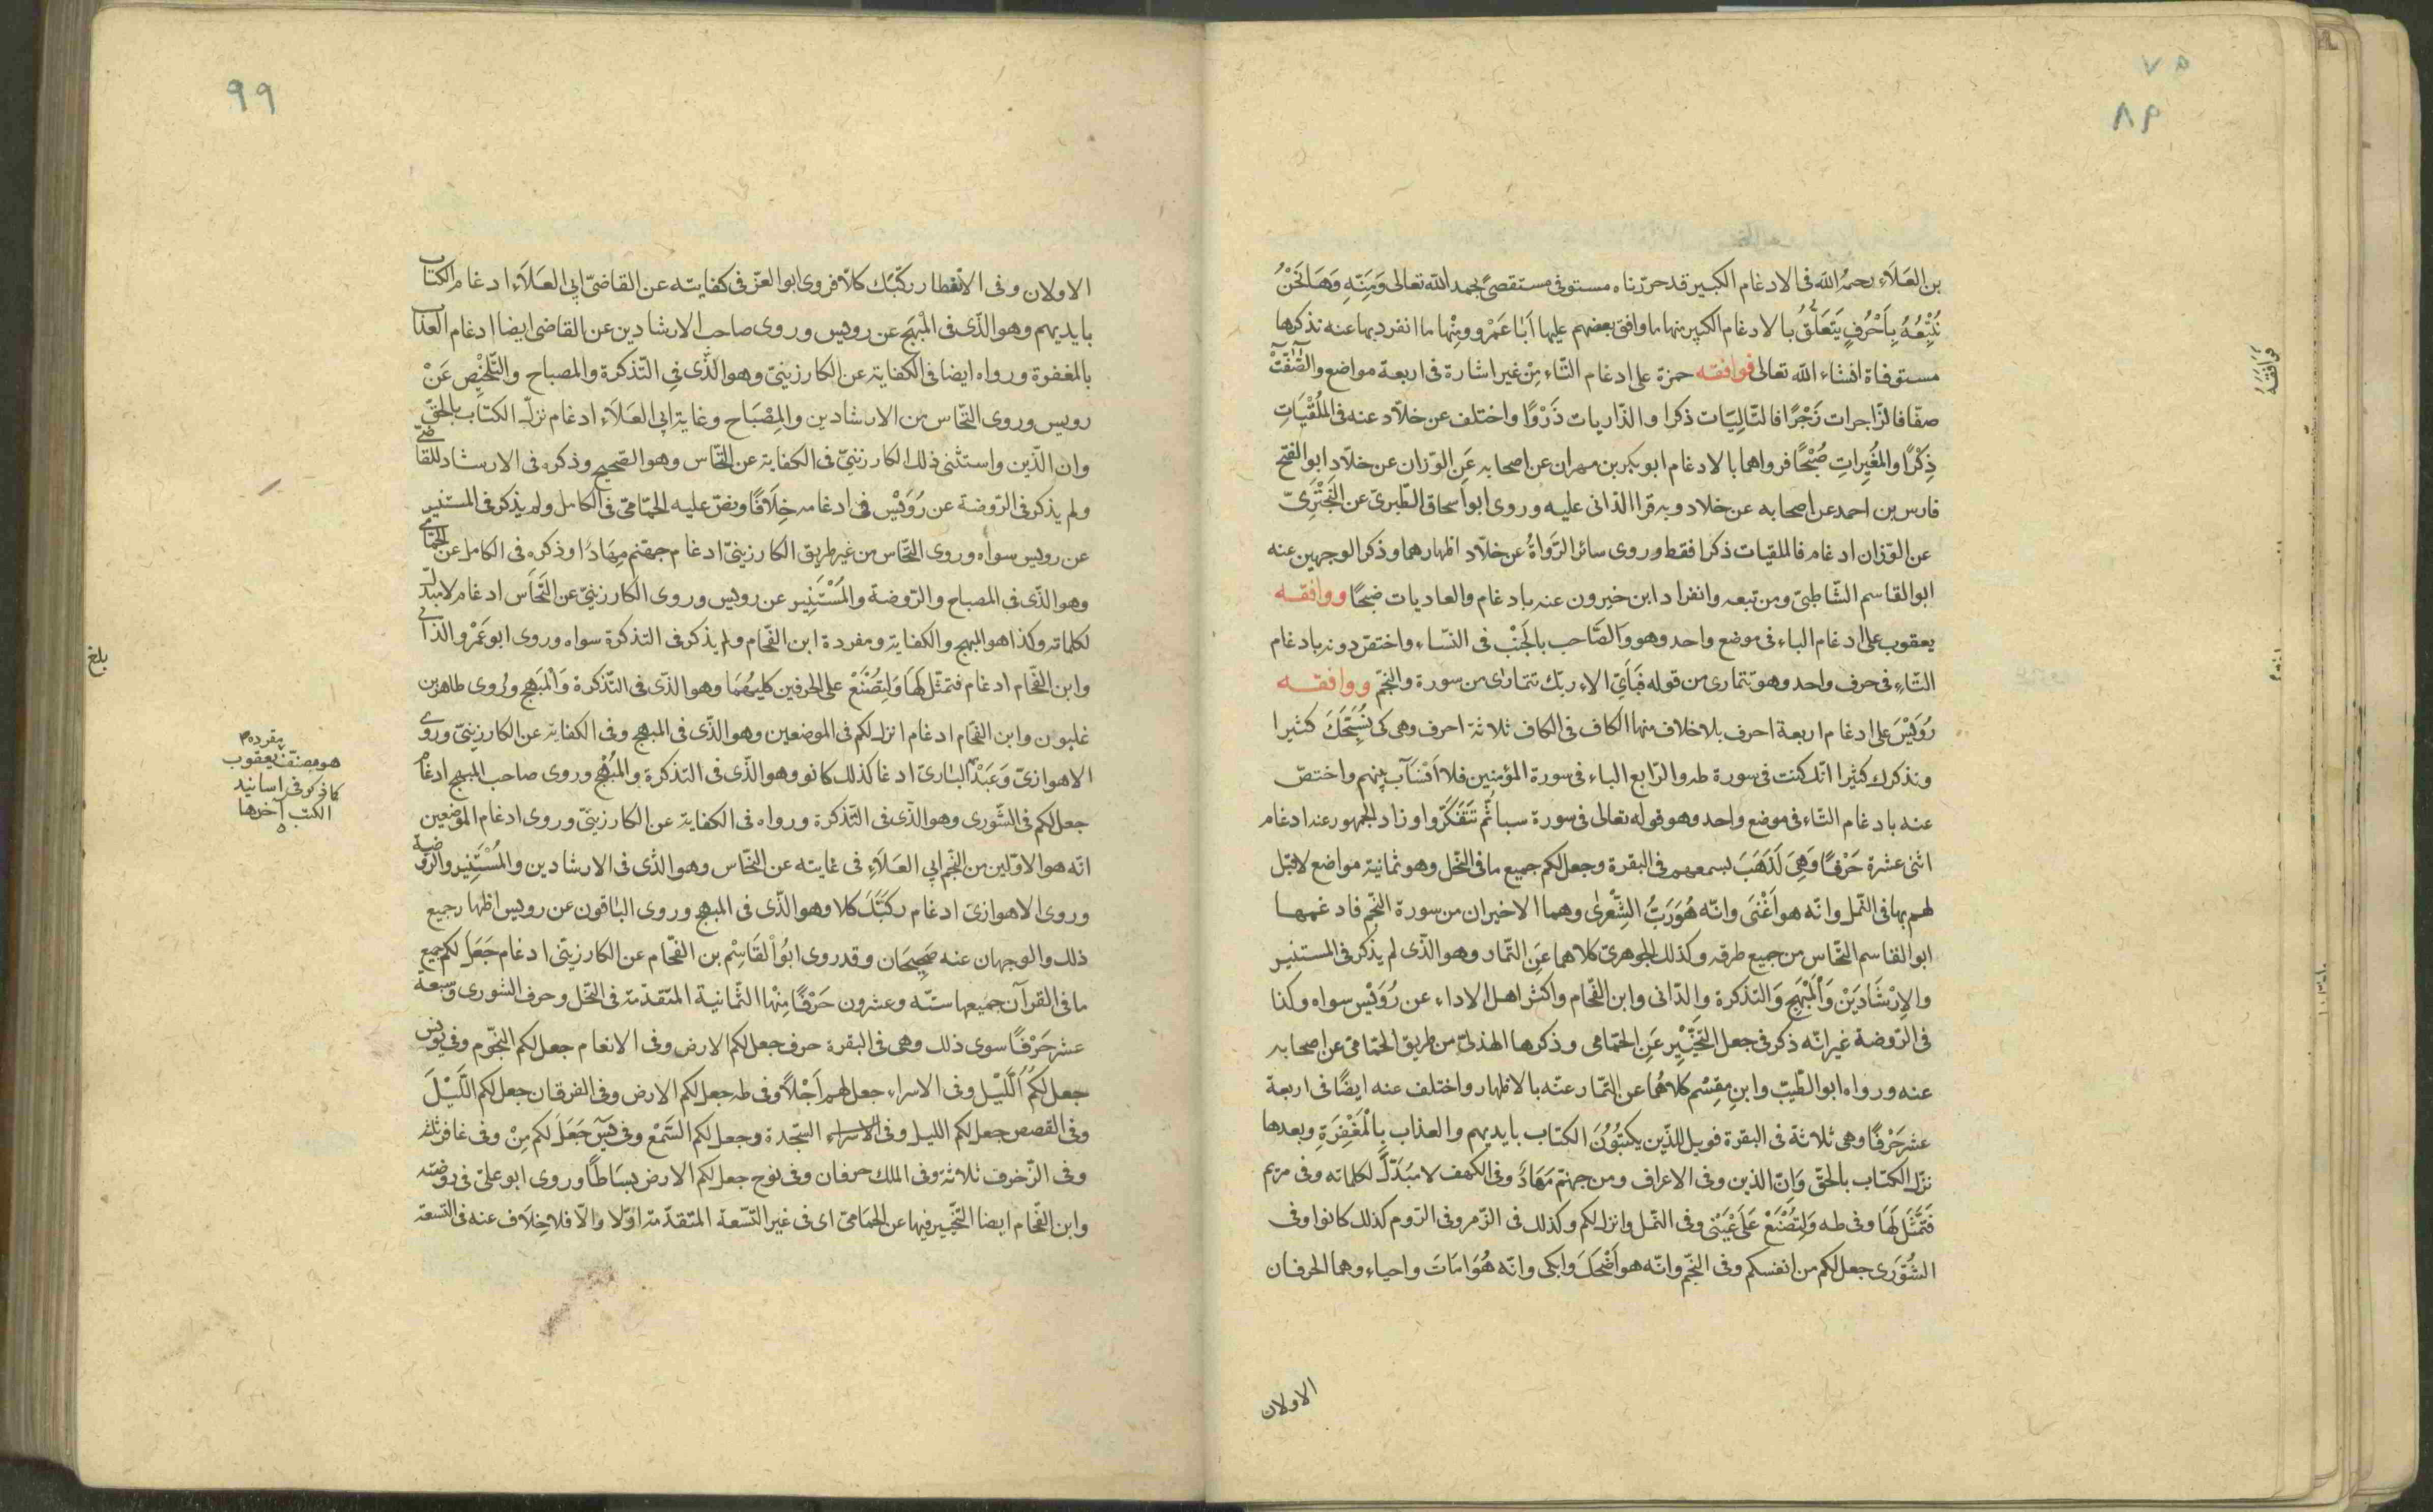 ٧٥
٨٩
بن العَلَاءِ رحمهُ الله فى الادغام الكبير قد حرّرناه مستوفى مستقصىً بحمد الله تعالى وَمَنِّهِ وَهَا نَحْنُ
نُتْبِعُهُ بِاَحْرُفٍ يَتَعَلَّقُ بالادغام الكبير منها ما وافق بعضهم عليها اَبَا عَمْرٍو ومِنْها ما انفرد بها عنه نذكرها
مستوفاة انشاء الله تعالى فوافقه حمزة على ادغام التّاء مِنْ غير اشارة فى اربعة مواضع والصّٰفّٰتْ
صفّا فالزّاجرات زَجْرًا فالتّالِيَات ذكرا والذّاريات ذَرْوًا واختلف عن خلّاد عنه فى المُلْقِيَاتِ
ذِكْرًا والمُغِيراتِ صُبْحًا فرواهما بالادغام ابو بكر بن مهران عن اصحابه عَنِ الوزّان عن خلّاد ابو الفتح
فارس بن احمد عن اصحابه عن خلاد وبه قرا الدّانى عليه وروى ابو اسحاق الطّبرىّ عن البَخْتَرِىّ
عن الوّزان ادغام فالملقيات ذكرا فقط وروى سائر الرُّوَاةُ عن خلّاد اظهارهما وذكر الوجهين عنه
ابو القاسم الشّاطبىّ ومن تبعه وانفراد ابن خيرون عنه بادغام والعاديات ضبحًا ووافقه
يعقوب على ادغام الباء فى موضع واحد وهو والصَّاحب بالجَنْب فى النّساء واختصّ دونه بادغام
التّاء فى حرف واحد وهو تتمارى من قوله فَبِاَىّ الاء ربّك تتمارى من سورة والنجّم ووافقه
رُوَيْسَ على ادغام اربعة احرف بلا خلاف منها الكاف فى الكاف ثلاثة احرف وهى كى نُسَبِّحَكَ كثيرا
ونذكرك كثيرا انّك كنت فى سورة طه والرّابع الباء فى سورة المؤمنين فلا اَنْسَاب بينهم واختصّ
عنه بادغام التّاء فى موضع واحد وهو قوله تعالى فى سورة سبا ثُمّ تتَفَكَّرُوا وزاد الجمهور عنه ادغام
اثنى عشرة حَرْفًا وَهِىَ لَذَهَبَ بسمعهم فى البقرة وجعل لكم جميع ما فى النّحل وهو ثمانية مواضع لا قبل
لهم بها فى النّمل وانّه هو اَغْنَى وانّه هُوَ رَبُّ الشِّعْرٰى وهما الاخيران من سورة النّجم فادغمها
ابو القاسم النّخّاس من جميع طرقه وكذلك الجوهرىّ كلاهما عَنِ التمّار وهو الّذى لم يذكر فى المستنير
والاِرْشَادَيْنْ وَالْمُبْهِج وَالتذكرة والدّانى وابن الفّحام واكثر اهل الاداء عن رُوَيْس سواه وكذا
فى الرّوضة غير انّه ذكر فى جعل التَّخْيِيْرِ عَنِ الحَمّامى وذكرها الهذلىّ من طريق الحمّامىّ عن اصحابه
عنه ورواه ابو الطّيّب وابن مِقسَم كلاهُمَا عن التمّار عنه بالاظهار واختلف عنه ايضًا فى اربعة
عشر حَرْفًا وهى ثلاثة فى البقرة فويل للّذين يكتبُوُنَ الكتاب بايديهم والعذاب بالْمَغْفِرَةِ وبعدها
نزّل الكتاب بالحقّ وَاِنّ الذين وفى الاعراف ومن جهنّم مَهَادٌ وفى الكهف لا مُبَدّلَ لكلماته وفى مريم
فَتَمَثَّلَ لَهَا وفى طه وَلِتُصْنَعْ عَلَى عَيْنى وفى النّمل وانزل لكم وكذلك فى الزّمر وفى الرّوم كذلك كانوا وفى
الشُّوْرَى جعل لكم من انفسكم وفى النجّم وانّه هو اَضْحَكَ وابكى وانّه هُوَ امَاتَ واحياء وهما الحرفان
الاولان
فوافقه
٩٩
الاولان وفى الانفطار ركّبك كلّا فروى ابو العزّ فى كفايته عن القاضىّ ابى العَلَاء ادغام الكتاب
بايديهم وهو الّذى فى المُبْهَج عن رويس وروى صاحب الارشادين عن القاضى ايضا ادغام العذاب
بالمغفوة ورواه ايضا فى الكفاية عن الكارزينىّ وهو الّذى فى التّذكرة والمصباح والتّلخِيْص عَنْ
رويس وروى النّخّاس من الارشادين والمِصْبَاح وغاية ابى العَلَاء ادغام نزّل الكتاب بالحقّ
وان الّذين واستثنى ذلك الكارزينىّ فى الكفاية عن النخّاس وهو الصّحيح وذكره فى الارشاد للقاضىّ
ولم يذكر فى الرّوضة عن رُوَيْس فى ادغامه خِلَافًا ونصّ عليه الحمّامىّ فى الكامل ولم يذكر فى المستنير
عن رويس سواه وروى النّخّاس من غير طريق الكارزينىّ ادغام جهنّم مِهَادًا وذكره فى الكامل عن الحَمّامىّ
وهو الّذى فى المصباح والرّوضة والمُسْتَنِير عن رويس وروى الكارزينىّ عن النَّخّاس ادغام لا مبدّل
لكلماته وكذا هو المبهج والكفاية ومفردة ابن الفّحام ولم يذكر فى التذكرة سواه وروى ابو عَمْرو الدّانى
وابن الفّحام ادغام فتمثّل لَهَا وَلِتُصْنَعْ على الحرفين كليهُمَا وهو الّذى فى التّذكرة وَالْمُبهج ورُوى طاهر بن
غلبون وابن الفّحام ادغام انزل لكم فى الموضعين وهو الّذى فى المبهج وفى الكفاية عن الكارزينىّ وروى
الاهوازىّ وَعَبْدُ البارىّ ادغا كذلك كانوا وهو الّذى فى التذكرة والمُبْهج وروى صاحب المبهج ادغام
جعل لكم فى الشّورى وهو الّذى فى التّذكرة ورواه فى الكفاية عن الكارزينىّ وروى ادغام الموضعين
انّه هو الاوّلين من النّجم ابى العَلَاءِ فى غايته عن النخّاس وهو الّذى فى الارشادين والمُسْتَنِير والرّوضة
وروى الاهوازىّ ادغام ركّبَكَ كلا وهو الّذى فى المبهج وروى البَاقون عن رويس اظهار جميع
ذلك والوجهان عنه صَحِيحَان وقد روى ابُو الْقَاسِمْ بن الفحّام عن الكارزينىّ ادغام جَعَلَ لكم جميع
ما فى القرآن جميعها ستّه وعشرون حَرْفًا مِنْها الثّمانية المتقدّمة فى النّحل وحرف الشورى وسَبعة
عشر حَرْفًا سوى ذلك وهى فى البقرة حرف جعل لكم الارض وفى الانعام جعل لكم النجّوم وفى يونس
جعل لكُمُ الَّلَيْل وفى الاسراء جعل لهم اَجَلًا وفى طه جعل لكم الارض وفى الفرقان جعل لكم الّلَيْلَ
وفى القصص جعل لكم الليل وفى الاسراء السّجدة وجعل لكم السَّمْعَ وفى يسٓ جَعَلَ لكم مِنْ وفى غافر ثلثة
وفى الزّخرف ثلاثة وفى الملك حرفان وفى نوح جعل لكم الارض بسَاطًا وروى ابو علىّ فى روضته
وابن الفّحام ايضا التّخيير فيها عن الحمّامىّ اى فى غير التّسعة المتقدّمة اوّلا والّا فلا خِلَاف عنه فى التسعة
بلغ
مفرده
هو مصنّف يعقوب
كما ذكر فى اسانيد
الكتب آخرها